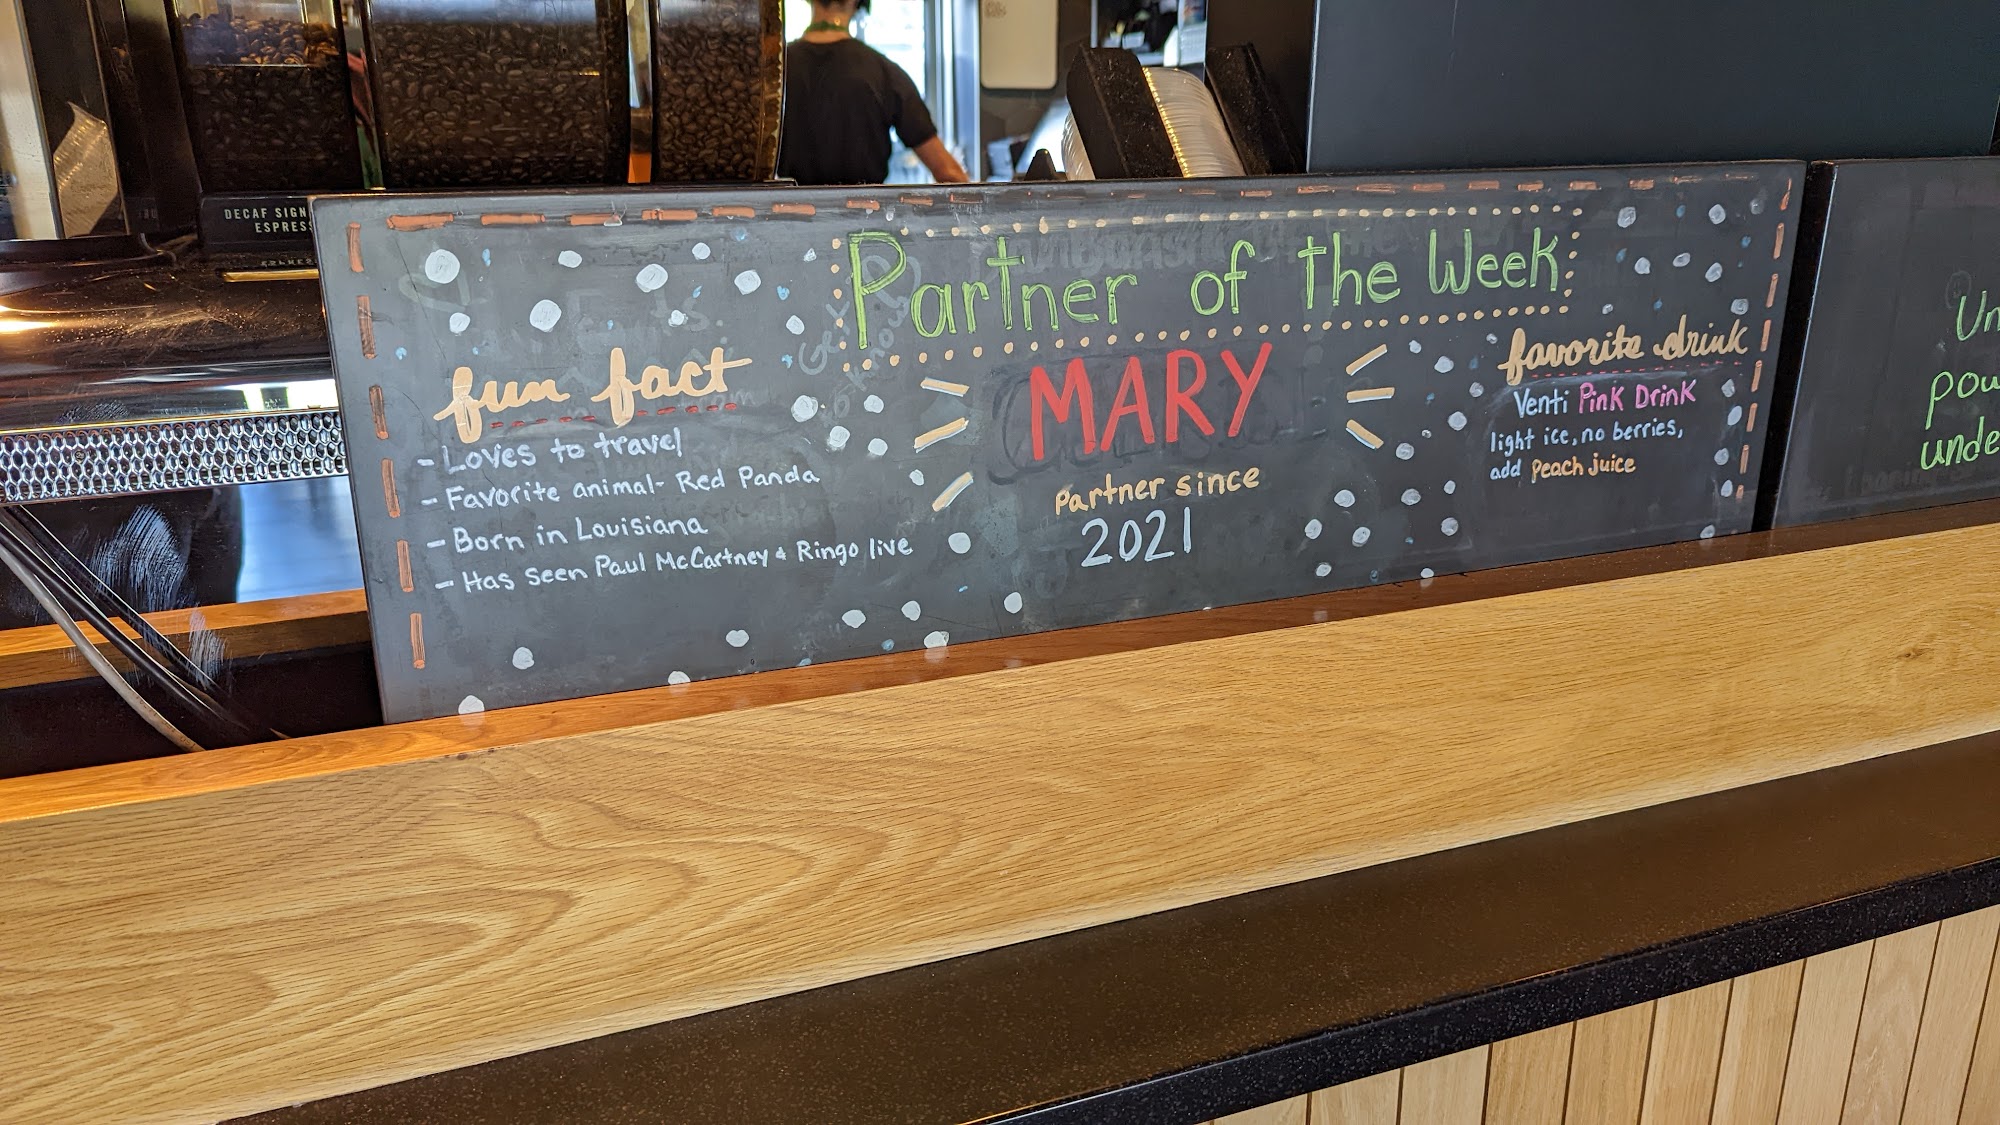 DECAF SIGN
ESPRESS
Partner of the Week
fun fact
- Loves to travel
- Favorite animal- Red Panda
- Born in Louisiana
- Has seen Paul McCartney & Ringo live
MARY
partner since
2021
favorite drink
Venti Pink Drink
light ice, no berries,
add peach juice
Un
pou
unde